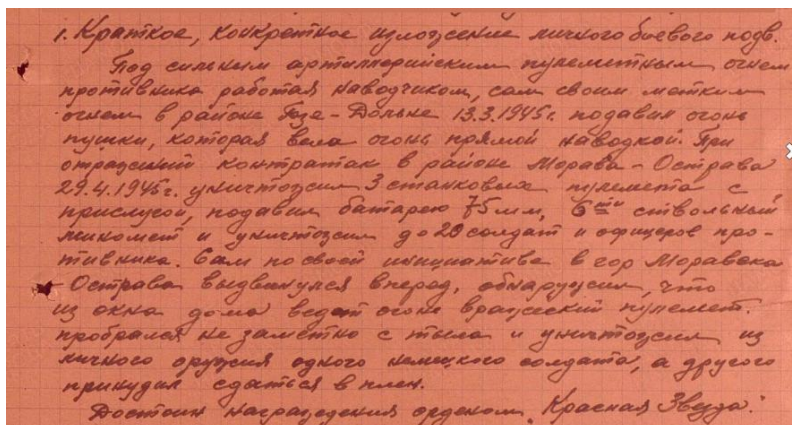 1. Краткое, конкретное изложение личного боевого подв.
Под сильным артиллерийским пулеметным огнем
противника работая наводчиком, сам своим метким
огнем в районе Гоже-Дольне 13.3.1945г. подавил огонь
пушки, которая вела огонь прямой наводкой. При
отражений контратак в районе Морава-Острава
29.4.1945г. уничтожил 3 станковых пулемета с
прислугой, подавил батарею 75мм, 6ти ствольный
миномет и уничтожил до 20 солдат и офицеров про-
тивника. Сам по своей инициативе в гор Моравска
Острава выдвинулся вперед, обнаружил, что
из окна дома ведет огонь вражеский пулемет.
пробрался не заметно с тыла и уничтожил из
личного оружия одного немецкого солдата, а другого
принудил сдаться в плен.
Достоин награждения орденом "Красная Звезда".